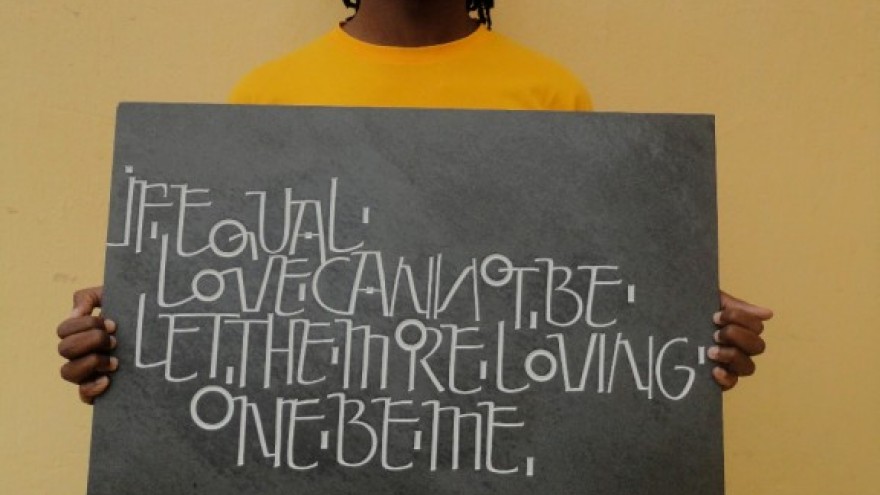 iF EQUAL
LOVE CANNOT BE
LET THE MORE LOVING
ONE BE ME